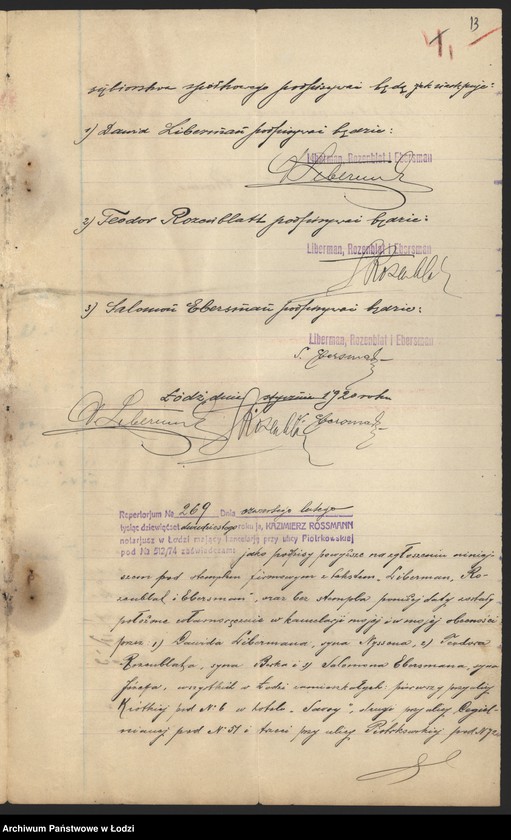 13
siębiorstwa spółkowego podpisywać będą jak następuje:
1) Dawid Liberman podpisywać będzie:
Liberman, Rozenblat i Ebersman
D Liberman
2) Teodor Rozenblatt podpisywać będzie:
Liberman, Rozenblat i Ebersman
T Rozenblat
3) Salomon Ebersman podpisywać będzie:
Liberman, Rozenblat i Ebersman
S. Ebersman
Łódź, dnia stycznia 1920 roku
D Liberman T Rozenblat S. Ebersman
Repertorjum № 269 Dnia czwartego lutego
tysiąc dziewięćset dwudziestego roku ja, KAZIMIERZ ROSSMANN
notarjusz w Łodzi mający kancelarję przy ulicy Piotrkowskiej
pod № 512/74 zaświadczam jako podpisy powyższe na zgłoszeniu niniej-
szem pod stemplem firmowym z tekstem "Liberman, Ro-
zenblat i Ebersman", oraz bez stempla poniżej daty zostały
położone własnoręcznie w kancelarji mojej i w mojej obecności
przez 1) Dawida Libermana, syna Nyssena, 2) Teodora
Rozenblata, syna Berka i 3) Salomona Ebersmana, syna
Józefa, wszystkich w Łodzi zamieszkałych: pierwszy przy ulicy
Krótkiej pod № 6 w hotelu "Savoy", drugi przy ulicy Cegiel-
nianej pod № 51 i trzeci przy ulicy Piotrkowskiej pod № 72
Archiwum Państwowe w Łodzi